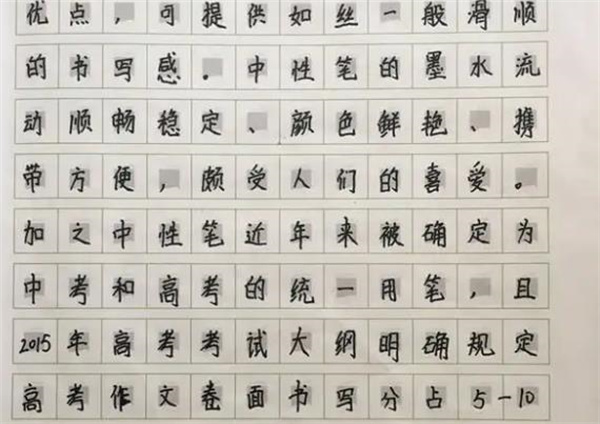 优点,可提供如丝一般滑顺
的书写感。中性笔的墨水流
动顺畅稳定、颜色鲜艳、携
带方便,颇受人们的喜爱。
加之中性笔近年来被确定为
中考和高考的统一用笔,且
2015年高考考试大纲明确规定
高考作文卷面书写分占5-10